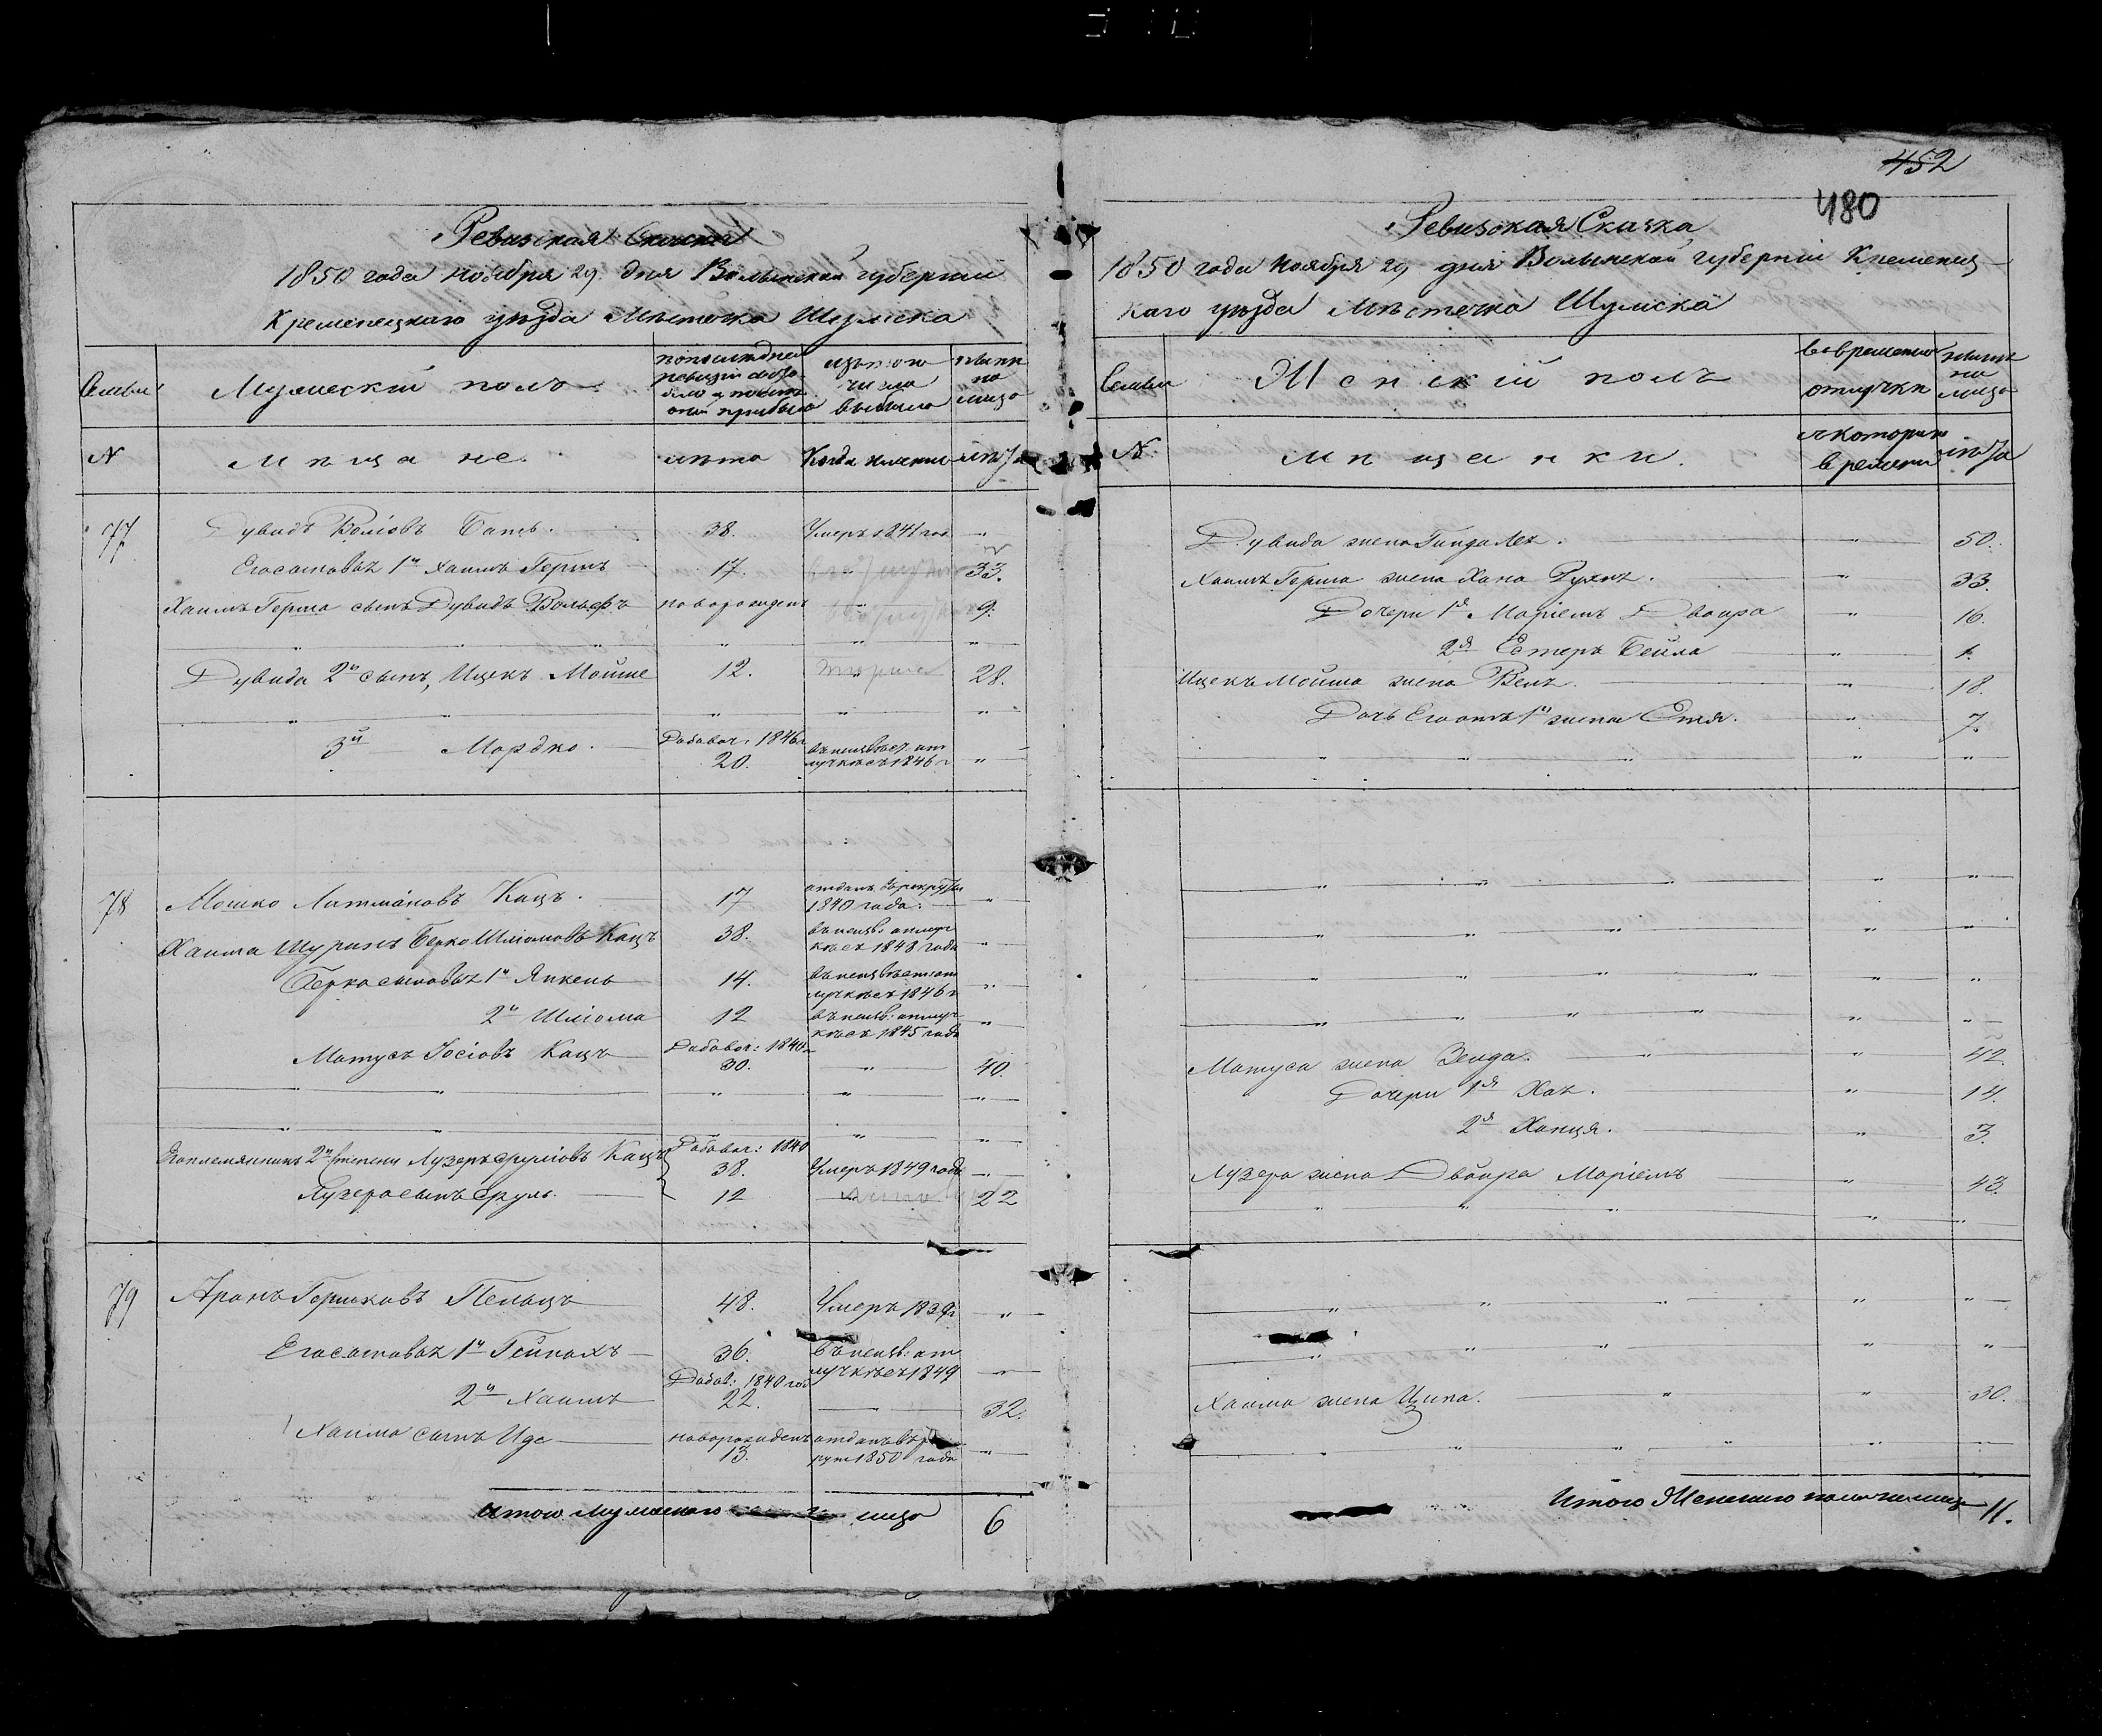 Ревизская Сказка
1850 года ноября 29 дня Волынской губернии
Кременецкаго уезда Местечка Шумска
Семьи
Мужескій полъ
по последней ревизіи состояло и после оной прибыло
изъ того числа выбыло
ныне на лицо
N
Мещане.
лета
Когда именно
лета
77
Дувидъ Волковъ Батъ.
38.
Умеръ 1841 год
"
Его сыновья 1й Хаимъ Гершъ
17.
"
33.
Хаимъ Герша сынъ Дувидъ Вольфъ
новорожденъ
"
9.
Дувида 2й сынъ, Ицекъ Мойше
12.
28.
3й Мордко.
Добавоч: 1846 г
20.
въ неизвест: отлучке съ 1846 г
"
78
Мошко Литмановъ Кацъ.
17
отданъ въ рекруты 1840 года.
"
Хаима Шуринъ Берко Шліомовъ Кацъ
38.
въ неизв: отлучке съ 1848 года
"
Берка сыновья 1й Янкель
14.
въ неизвест: отлучке съ 1846 г
"
2й Шліома
12
въ неизв: отлучке съ 1845 года
"
Матусъ Іосіовъ Кацъ
Добавоч: 1840 г
30.
"
40.
Его племянникъ 2й степени Лузеръ Сруліовъ Кацъ
Добавоч: 1840
38.
Умеръ 1849 года
"
Лузера сынъ Сруль.
12
22
79
Аронъ Гершковъ Пельцъ
48.
Умеръ 1839 г
"
Его сыновья 1й Гейнахъ
36.
въ неизв: отлучке съ 1849
"
2й Хаимъ
Добав: 1840 год
22.
"
32.
Хаима сынъ Иде
новорожденъ
13.
отданъ въ рекруты 1850 года
"
Итого Мужескаго на лицо
6
452
480
Ревизская Сказка
1850 года Ноября 29 дня Волынской губерніи Кременец-
каго уезда Местечка Шумска
Семьи
Женскій полъ
во временной отлучке
ныне на лицо
N.
Мещанки.
съ котораго времени
лета
Дувида жена Гинда Лея.
"
50.
Хаимъ Герша жена Хана Рухля.
"
33.
Дочери 1я Маріемъ Двойра
"
16.
2я Естеръ Бейла
"
1.
Ицекъ Мойша жена Реля.
"
18.
Дочь Его отъ 1й жены Етя.
"
7.
Матуса жена Зельда.
"
42.
Дочери 1я Хая.
"
14.
2я Ханця.
"
3.
Лузера жена Двойра Маріемъ
"
43.
Хаима жена Ципа.
"
30.
Итого Женскаго пола на лицо
11.